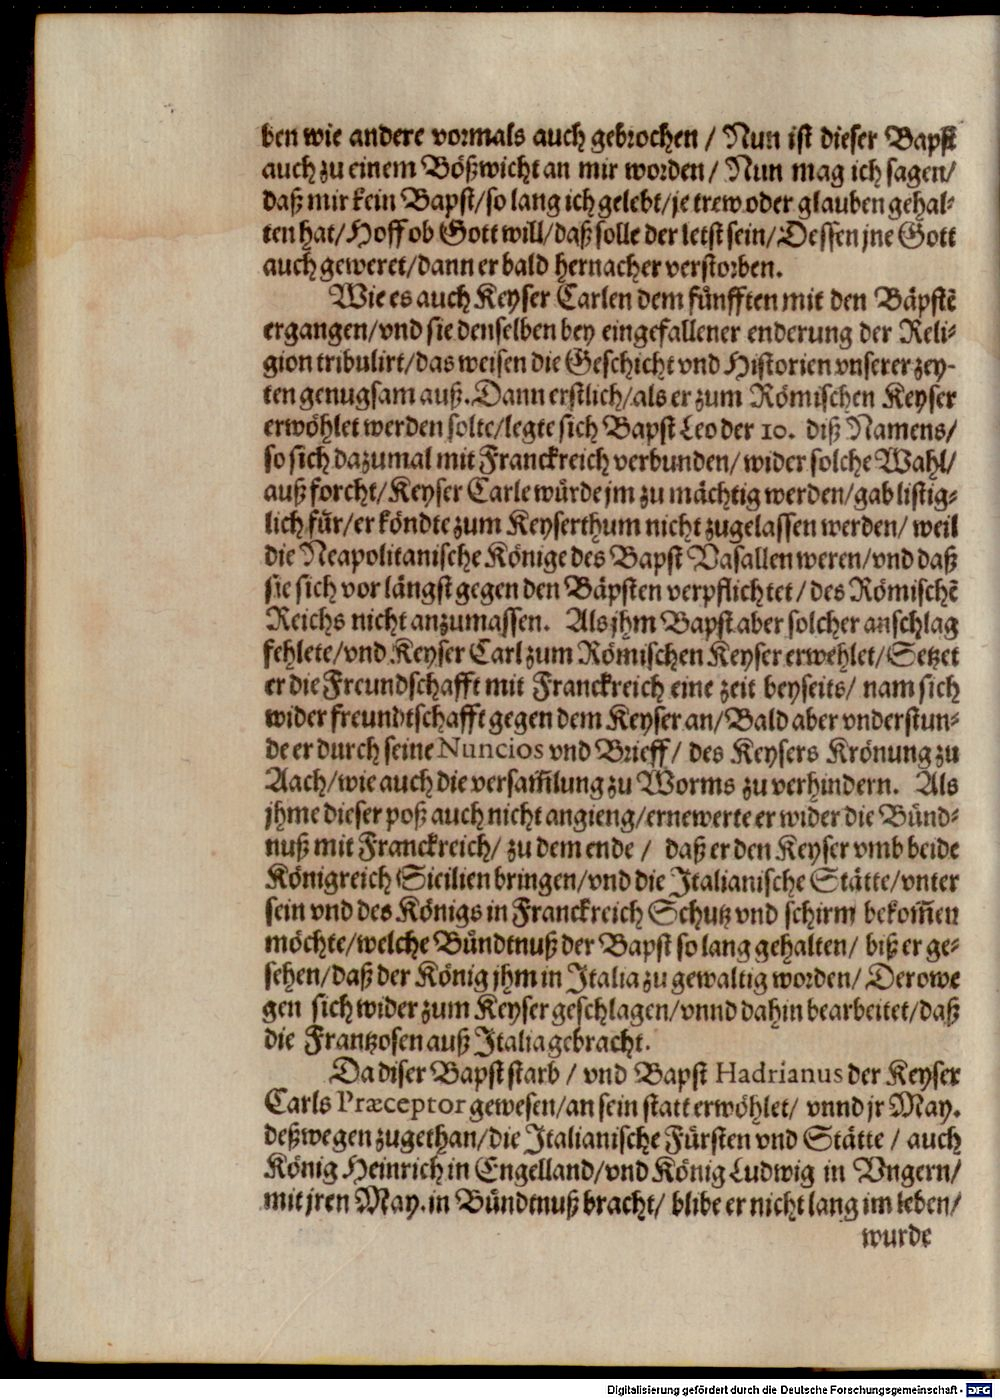 ben wie andere vormals auch gebrochen / Nun ist dieser Bapst
auch zu einem Bößwicht an mir worden / Nun mag ich sagen/
daß mir kein Bapst/so lang ich gelebt/je trew oder glauben gehal-
ten hat/Hoff ob Gott will/daß solle der letst sein/Dessen jne Gott
auch geweret/dann er bald hernacher verstorben.
Wie es auch Keyser Carlen dem fünfften mit den Bäpstē
ergangen/vnd sie denselben bey eingefallener enderung der Reli-
gion tribulirt/das weisen die Geschicht vnd Historien vnserer zey-
ten genugsam auß. Dann erstlich/als er zum Römischen Keyser
erwöhlet werden solte/legte sich Bapst Leo der 10. diß Namens/
so sich dazumal mit Franckreich verbunden/wider solche Wahl/
auß forcht/Keyser Carle würde jm zu mächtig werden/gab listig-
lich für/er köndte zum Keyserthum nicht zugelassen werden/ weil
die Neapolitanische Könige des Bapst Vasallen weren/vnd daß
sie sich vor längst gegen den Bäpsten verpflichtet/des Römischē
Reichs nicht anzumassen. Als jhm Bapst aber solcher anschlag
fehlete/vnd Keyser Carl zum Römischen Keyser erwehlet/Setzet
er die Freundschafft mit Franckreich eine zeit beyseits/ nam sich
wider freundtschafft gegen dem Keyser an/Bald aber vnderstun-
de er durch seine Nuncios vnd Brieff/ des Keysers Krönung zu
Aach/wie auch die versam̃lung zu Worms zu verhindern. Als
jhme dieser poß auch nicht angieng/ernewerte er wider die Bünd-
nuß mit Franckreich/ zu dem ende / daß er den Keyser vmb beide
Königreich Sicilien bringen/vnd die Italianische Stätte/vnter
sein vnd des Königs in Franckreich Schutz vnd schirm bekom̃en
möchte/welche Bündtnuß der Bapst so lang gehalten/ biß er ge-
sehen/daß der König jhm in Italia zu gewaltig worden/ Derowe
gen sich wider zum Keyser geschlagen/vnnd dahin bearbeitet/daß
die Frantzosen auß Italia gebracht.
Da diser Bapst starb / vnd Bapst Hadrianus der Keyser
Carls Præceptor gewesen/an sein statt erwöhlet/ vnnd jr May.
deßwegen zugethan/die Italianische Fürsten vnd Stätte / auch
König Heinrich in Engelland/vnd König Ludwig in Vngern/
mit jren May. in Bündtnuß bracht/ blibe er nicht lang im leben/
wurde
Digitalisierung gefördert durch die Deutsche Forschungsgemeinschaft - DFG